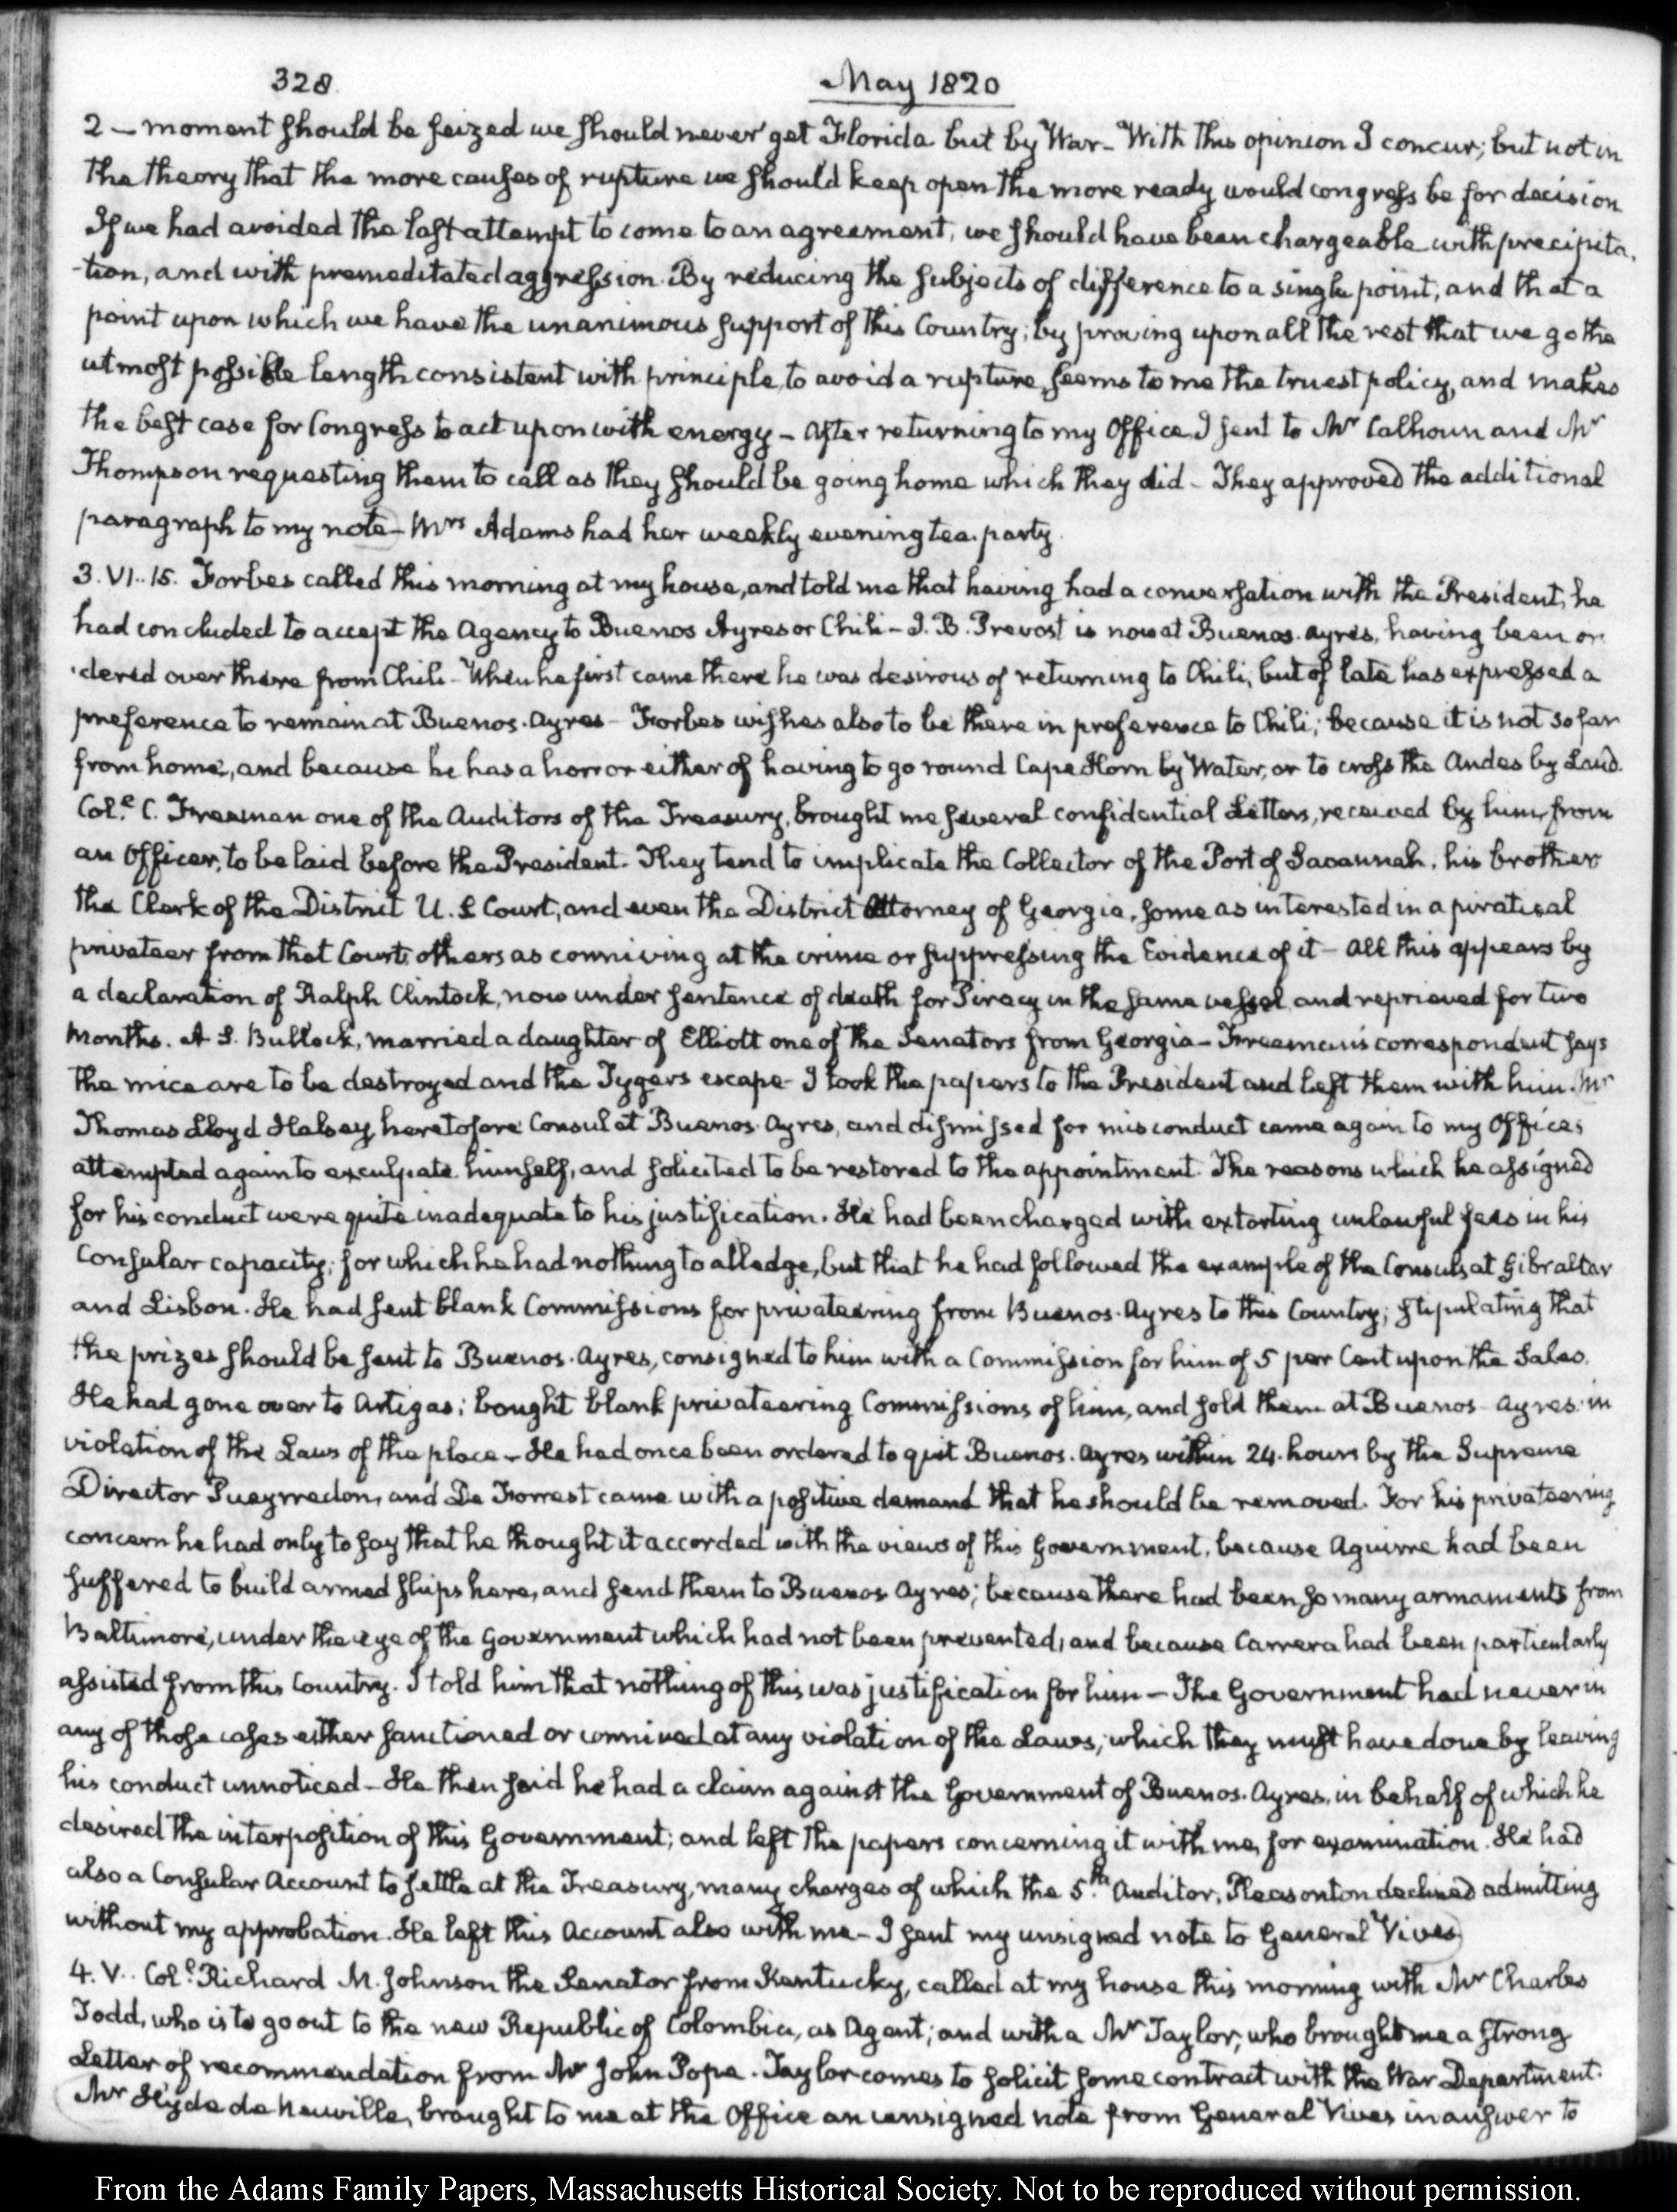 328.
May 1820
2 – moment should be seized we should never get Florida but by War – With this opinion I concur; but not in
the theory that the more causes of rupture we should keep open the more ready would congress be for decision
If we had avoided the last attempt to come to an agreement, we should have been chargeable with precipita-
-tion, and with premeditated aggression. By reducing the subjects of difference to a single point, and that a
point upon which we have the unanimous support of this Country; by proving upon all the rest that we go the
utmost possible length consistent with principle, to avoid a rupture, seems to me the truest policy, and makes
the best case for Congress to act upon with energy – After returning to my Office I sent to Mr Calhoun and Mr
Thompson requesting them to call as they should be going home which they did – They approved the additional
paragraph to my note – Mrs Adams had her weekly evening tea-party.
3. VI..15. Forbes called this morning at my house, and told me that having had a conversation with the President, he
had concluded to accept the Agency to Buenos Ayres or Chili – J. B. Prevost is now at Buenos-Ayres, having been or-
-dered over there from Chili – When he first came there he was desirous of returning to Chili, but of late has expressed a
preference to remain at Buenos-Ayres – Forbes wishes also to be there in preference to Chili; because it is not so far
from home, and because he has a horror either of having to go round Cape Horn by Water, or to cross the Andes by Land.
Col.e C. Freeman one of the Auditors of the Treasury, brought me several confidential Letters, received by him, from
an Officer, to be laid before the President. They tend to implicate the Collector of the Port of Savannah, his brother
the Clerk of the District U.S Court, and even the District Attorney of Georgia, some as interested in a piratical
privateer from that Court; others as conniving at the crime or suppressing the Evidence of it – All this appears by
a declaration of Ralph Clintock, now under sentence of death for Piracy in the same vessel, and reprieved for two
Months. A S. Bullock, married a daughter of Elliott one of the Senators from Georgia – Freeman's correspondent says
the mice are to be destroyed and the Tygers escape – I took the papers to the President and left them with him. Mr
Thomas Lloyd Halsey, heretofore Consul at Buenos-Ayres, and dismissed for misconduct came again to my Office;
attempted again to exculpate himself, and solicited to be restored to the appointment. The reasons which he assigned
for his conduct were quite inadequate to his justification. He had been charged with extorting unlawful fees in his
Consular capacity; for which he had nothing to alledge, but that he had followed the example of the Consuls at Gibraltar
and Lisbon. He had sent blank Commissions for privateering from Buenos-Ayres to this Country; stipulating that
the prizes should be sent to Buenos-Ayres, consigned to him with a Commission for him of 5 per Cent upon the Sales.
He had gone over to Artigas; bought blank privateering Commissions of him, and sold them at Buenos-Ayres in
violation of the Laws of the place – He had once been ordered to quit Buenos-Ayres within 24 hours by the Supreme
Director Pueyrredon, and De Forrest came with a positive demand that he should be removed. For his privateering
concern he had only to say that he thought it accorded with the views of this Government, because Aguirre had been
suffered to build armed ships here, and send them to Buenos Ayres; because there had been so many armaments from
Baltimore, under the eye of the Government which had not been prevented, and because Carrera had been particularly
assisted from this Country. I told him that nothing of this was justification for him – The Government had never in
any of those cases either sanctioned or connived at any violation of the Laws; which they must have done by leaving
his conduct unnoticed – He then said he had a claim against the Government of Buenos-Ayres, in behalf of which he
desired the interposition of this Government; and left the papers concerning it with me, for examination. He had
also a Consular Account to settle at the Treasury, many charges of which the 5.th Auditor, Pleasonton declined admitting
without my approbation. He left this Account also with me – I sent my unsigned note to General Vives
4. V.. Col.e Richard M. Johnson the Senator from Kentucky, called at my house this morning with Mr Charles
Todd, who is to go out to the new Republic of Colombia, as Agent; and with a Mr Taylor, who brought me a strong
Letter of recommendation from Mr John Pope. Taylor comes to solicit some contract with the War Department.
Mr Hyde de Neuville, brought to me at the Office an unsigned note from General Vives in answer to
From the Adams Family Papers, Massachusetts Historical Society. Not to be reproduced without permission.